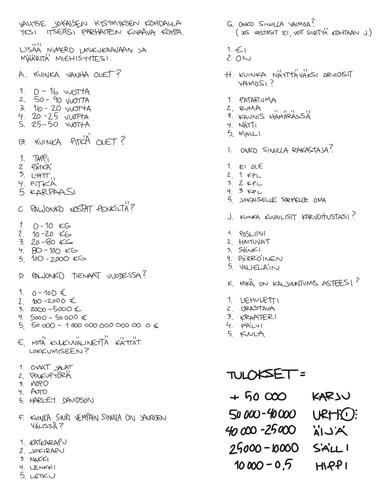 VALITSE JOKAISEN KYSYMYKSEN KOHDALLA
YKSI ITSEÄSI PARHAITEN KUVAAVA KOHTA.
LISÄÄ NUMERO LASKUKAAVAAN JA
MÄÄRITÄ MIEHISYYTESI.
A. KUINKA VANHA OLET?
1. 0-16 VUOTTA
2. 50-90 VUOTTA
3. 16-20 VUOTTA
4. 20-25 VUOTTA
5. 25-50 VUOTTA
B. KUINKA PITKÄ OLET?
1. TAPPI
2. PÄTKÄ
3. LYHYT
4. PITKÄ
5. KARPAASI
C. PALJONKO NOSTAT PENKILTÄ?
1. 0-10 KG
2. 10-20 KG
3. 20-80 KG
4. 80-100 KG
5. 100-2000 KG
D. PALJONKO TIENAAT VUODESSA?
1. 0-100 €
2. 100-2000 €
3. 2000-5000 €
4. 5000-50000 €
5. 50 000 -
E. MITÄ KULKUVÄLINETTÄ KÄYTÄT
LIIKKUMISEEN?
1. OMAT JALAT
2. POLKUPYÖRÄ
3. MOPO
4. AUTO
5. HARLEY DAVIDSON
F. KUINKA SUURI VEMPAIN SINULLA ON JALKOJEN
VÄLISSÄ?
1. KATKARAPU
2. JOKIRAPU
3. NAKKI
4. LENKKI
5. LETKU
G. ONKO SINULLA VAIMOA?
(JOS VASTASIT EI, VOIT SIIRTYÄ KOHTAAN J.)
1. EI
2. ON
H. KUINKA NÄYTTÄVÄKSI ARVIOISIT
VAIMOSI?
1. PATARUMA
2. RUMA
3. KAUNIS HÄMÄRÄSSÄ
4. NÄTTI
5. MALLI
I. ONKO SINULLA RAKASTAJA?
1. EI OLE
2. 1 KPL
3. 2 KPL
4. 3 KPL
5. JOKAISELLE SORMELLE OMA
J. KUINKA KUVAILISIT KARVOITUSTASI?
1. POSLIINI
2. HAITUVAT
3. SÄNKI
4. PÖRRÖINEN
5. VALJELÄIN
K. MIKÄ ON KALJUUNTUMIS ASTEESI?
1. LEHVLETTI
2. ORASTAVA
3. KRAATERI
4. PÄLVI
5. KUULA
TULOKSET =
+ 50 000 KARJU
50 000-40 000 URHO
40 000-25 000 ÄIJÄ
25000-10000 SÄLLI
10 000-0,5 HIPPI